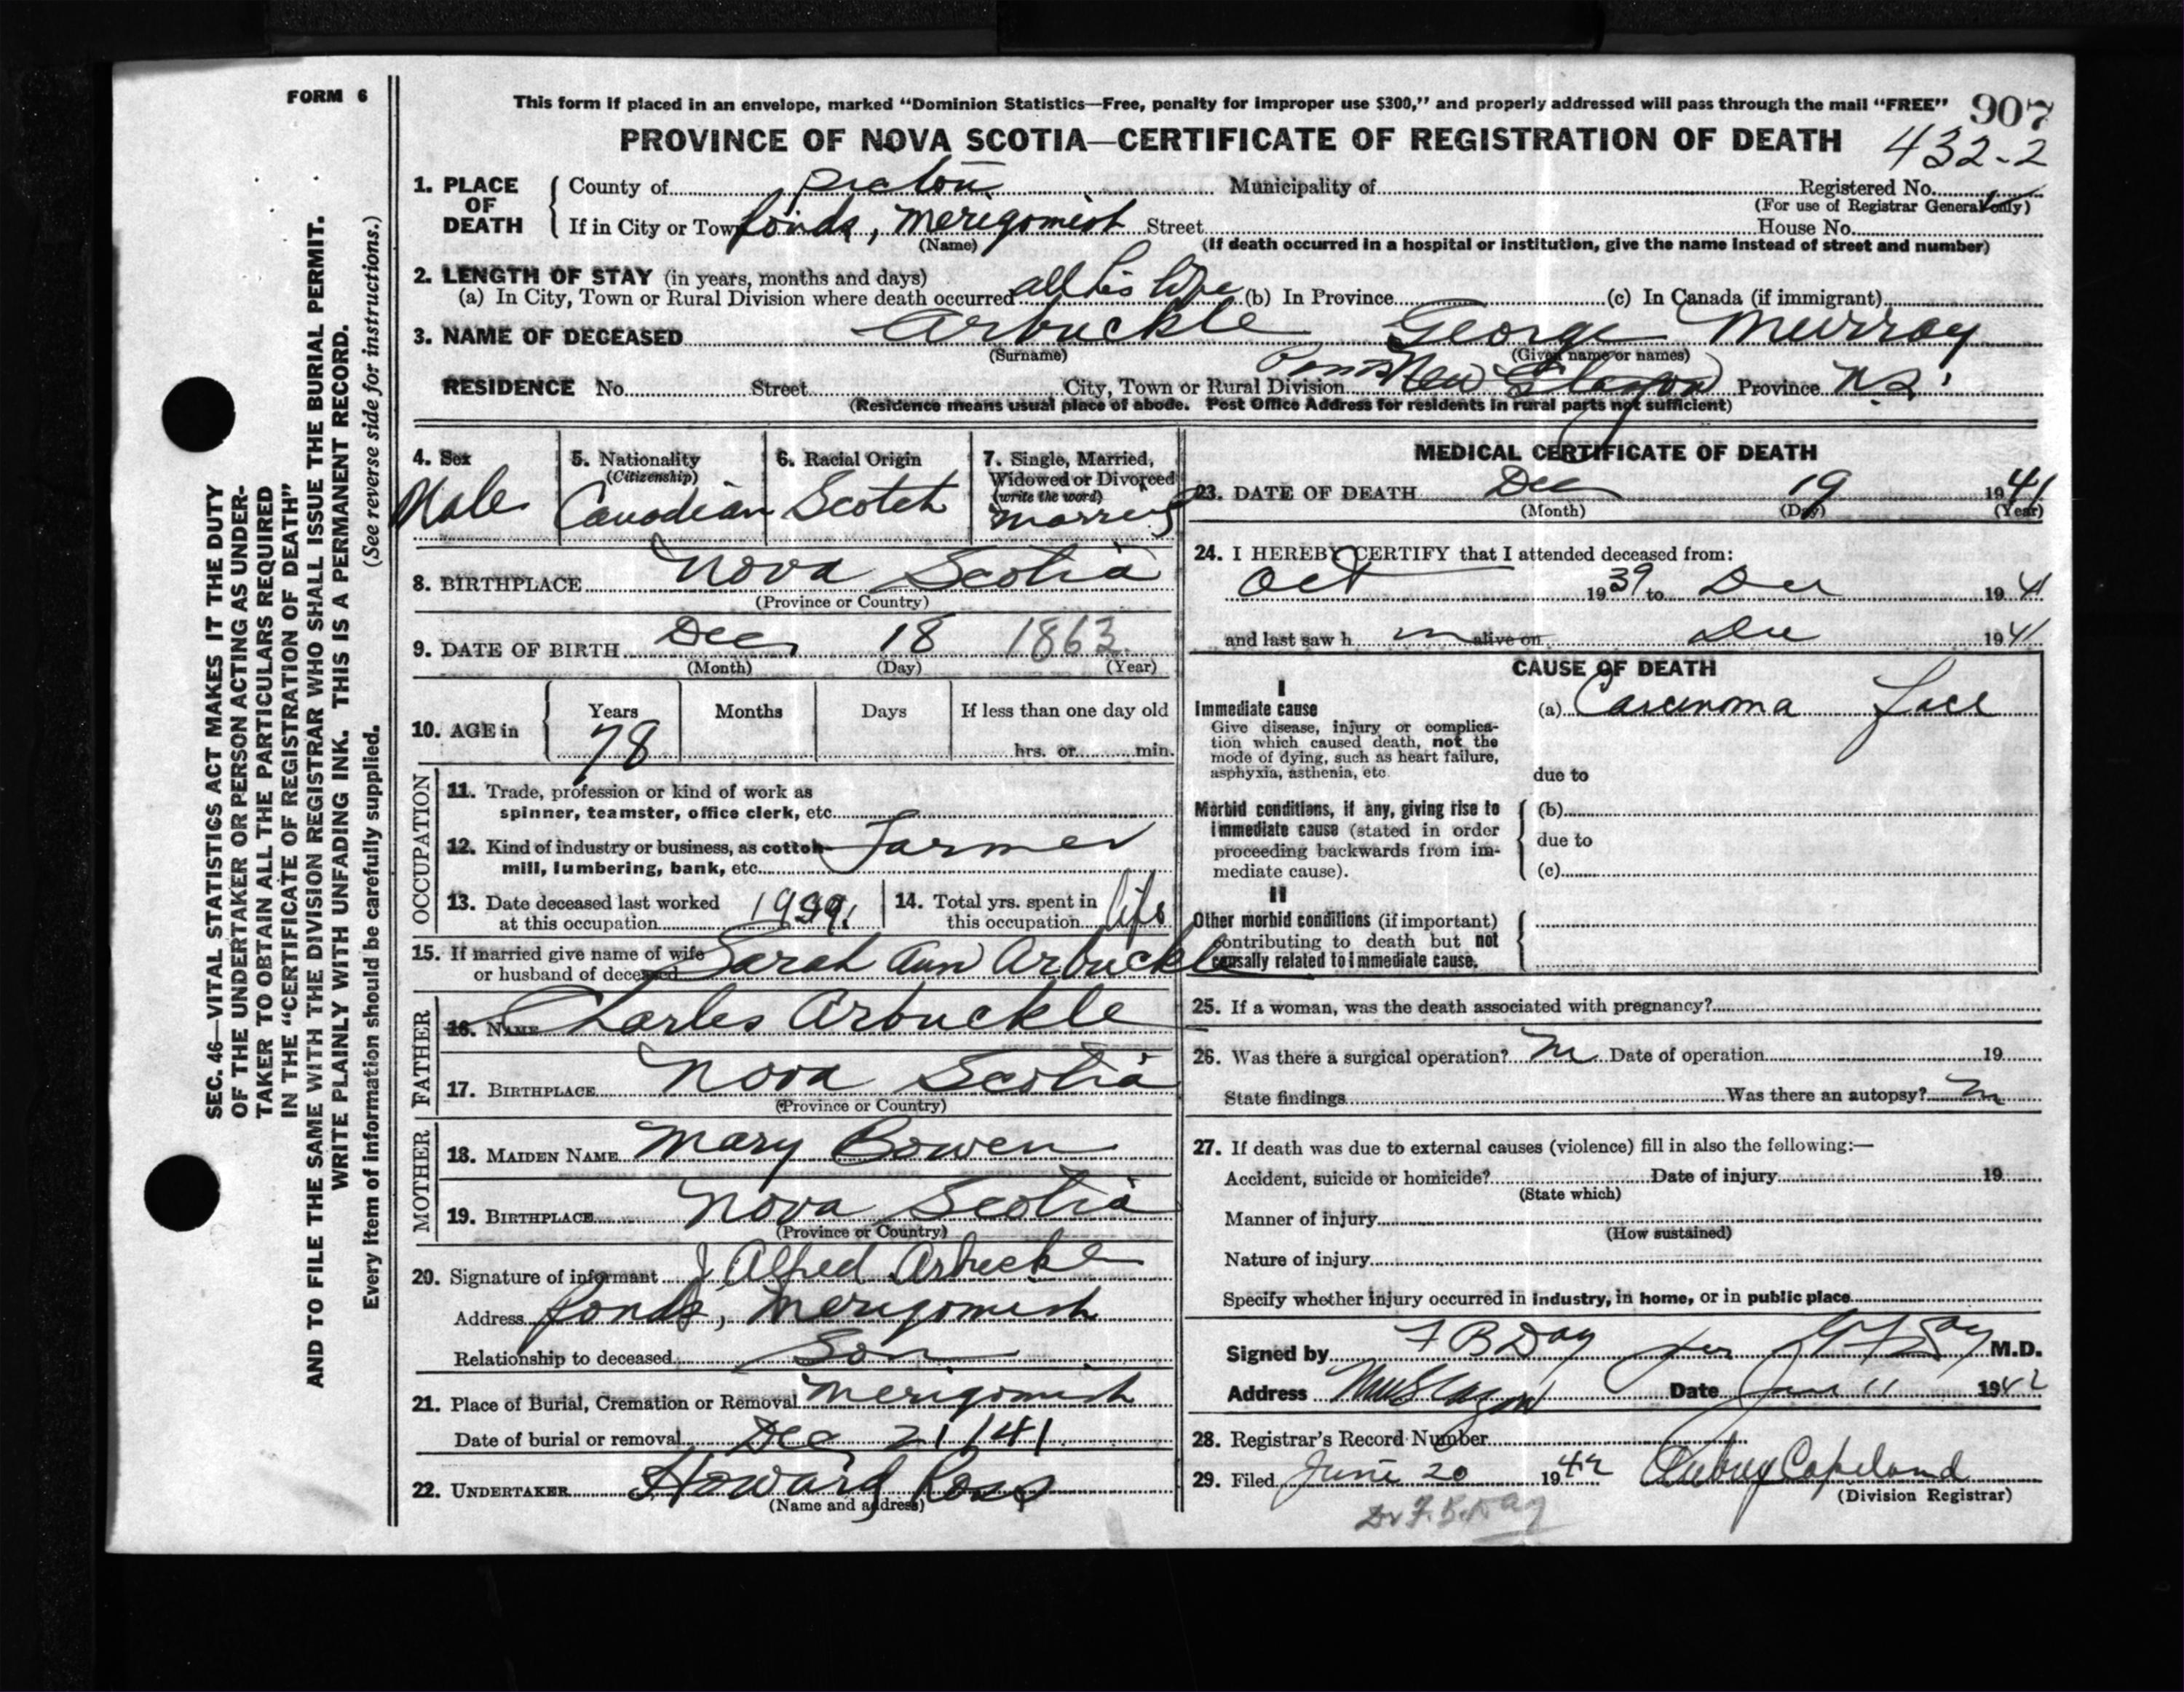 FORM 6
This form if placed in an envelope, marked "Dominion Statistics—Free, penalty for improper use $300," and properly addressed will pass through the mail "FREE"
907
PROVINCE OF NOVA SCOTIA—CERTIFICATE OF REGISTRATION OF DEATH
432-2
1. PLACE OF DEATH
County of Pictou Municipality of Registered No.
(For use of Registrar General only)
If in City or Town Ponds, Merigomish Street House No.
(Name) (If death occurred in a hospital or institution, give the name instead of street and number)
2. LENGTH OF STAY (in years, months and days)
(a) In City, Town or Rural Division where death occurred all his life (b) In Province (c) In Canada (if immigrant)
3. NAME OF DECEASED Arbuckle George Murray
(Surname) (Given name or names)
RESIDENCE No. Street City, Town or Rural Division Ponds New Glasgow Province N.S.
(Residence means usual place of abode. Post Office Address for residents in rural parts not sufficient)
4. Sex
Male
5. Nationality
(Citizenship)
Canadian
6. Racial Origin
Scotch
7. Single, Married,
Widowed or Divorced
(write the word)
Married
8. BIRTHPLACE Nova Scotia
(Province or Country)
9. DATE OF BIRTH Dec 18 1863
(Month) (Day) (Year)
10. AGE in
Years Months Days If less than one day old
78 hrs. or min.
OCCUPATION
11. Trade, profession or kind of work as
spinner, teamster, office clerk, etc.
12. Kind of industry or business, as cotton-
mill, lumbering, bank, etc. Farmer
13. Date deceased last worked
at this occupation
14. Total yrs. spent in
this occupation life
15. If married give name of wife
or husband of deceased Sarah Ann Arbuckle
FATHER
16. NAME Charles Arbuckle
17. BIRTHPLACE Nova Scotia
(Province or Country)
MOTHER
18. MAIDEN NAME Mary Bowen
19. BIRTHPLACE Nova Scotia
(Province or Country)
20. Signature of informant J Alfred Arbuckle
Address Ponds, Merigomish
Relationship to deceased Son
21. Place of Burial, Cremation or Removal Merigomish
Date of burial or removal Dec 21/41
22. UNDERTAKER Howard Ross
(Name and address)
MEDICAL CERTIFICATE OF DEATH
23. DATE OF DEATH Dec 19 1941
(Month) (Day) (Year)
24. I HEREBY CERTIFY that I attended deceased from:
Oct 1939 to Dec 1941
and last saw h m alive on Dec 1941
CAUSE OF DEATH
I
Immediate cause
Give disease, injury or complica-
tion which caused death, not the
mode of dying, such as heart failure,
asphyxia, asthenia, etc.
(a) Carcinoma Face
due to
Morbid conditions, if any, giving rise to
immediate cause (stated in order
proceeding backwards from im-
mediate cause).
(b)
due to
(c)
II
Other morbid conditions (if important)
contributing to death but not
causally related to immediate cause.
25. If a woman, was the death associated with pregnancy?
26. Was there a surgical operation? No Date of operation 19
State findings Was there an autopsy? No
27. If death was due to external causes (violence) fill in also the following:—
Accident, suicide or homicide? Date of injury 19
(State which)
Manner of injury
(How sustained)
Nature of injury
Specify whether injury occurred in industry, in home, or in public place
Signed by F B Day per G F Day M.D.
Address New Glasgow Date June 11 1942
28. Registrar's Record Number
29. Filed June 20 1942 Aubrey Copeland
(Division Registrar)
Dr F. B. Day
SEC. 46—VITAL STATISTICS ACT MAKES IT THE DUTY
OF THE UNDERTAKER OR PERSON ACTING AS UNDER-
TAKER TO OBTAIN ALL THE PARTICULARS REQUIRED
IN THE "CERTIFICATE OF REGISTRATION OF DEATH"
AND TO FILE THE SAME WITH THE DIVISION REGISTRAR WHO SHALL ISSUE THE BURIAL PERMIT.
WRITE PLAINLY WITH UNFADING INK. THIS IS A PERMANENT RECORD.
Every item of information should be carefully supplied. (See reverse side for instructions.)